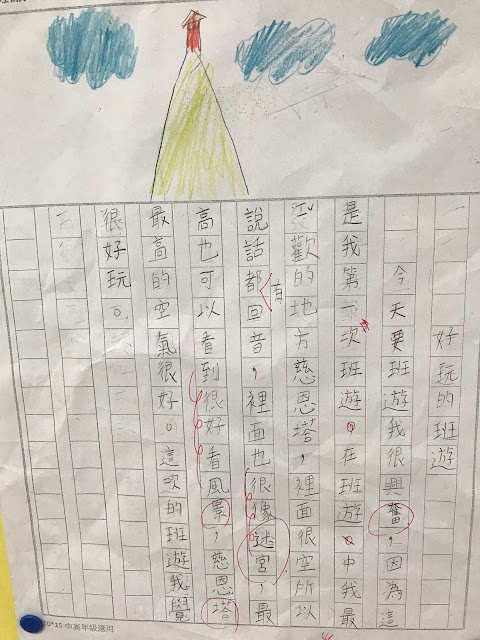 好玩的班遊
今天要班遊我很興奮，因為這
是我第次班遊。在班遊中我最
歡的地方慈恩塔，裡面很空所以
說話都有回音，裡面也很像迷宮，最
高也可以看到很好看風景，慈恩塔
最高的空氣很好。這次的班遊我覺
很好玩。
0*15 中高年級適用